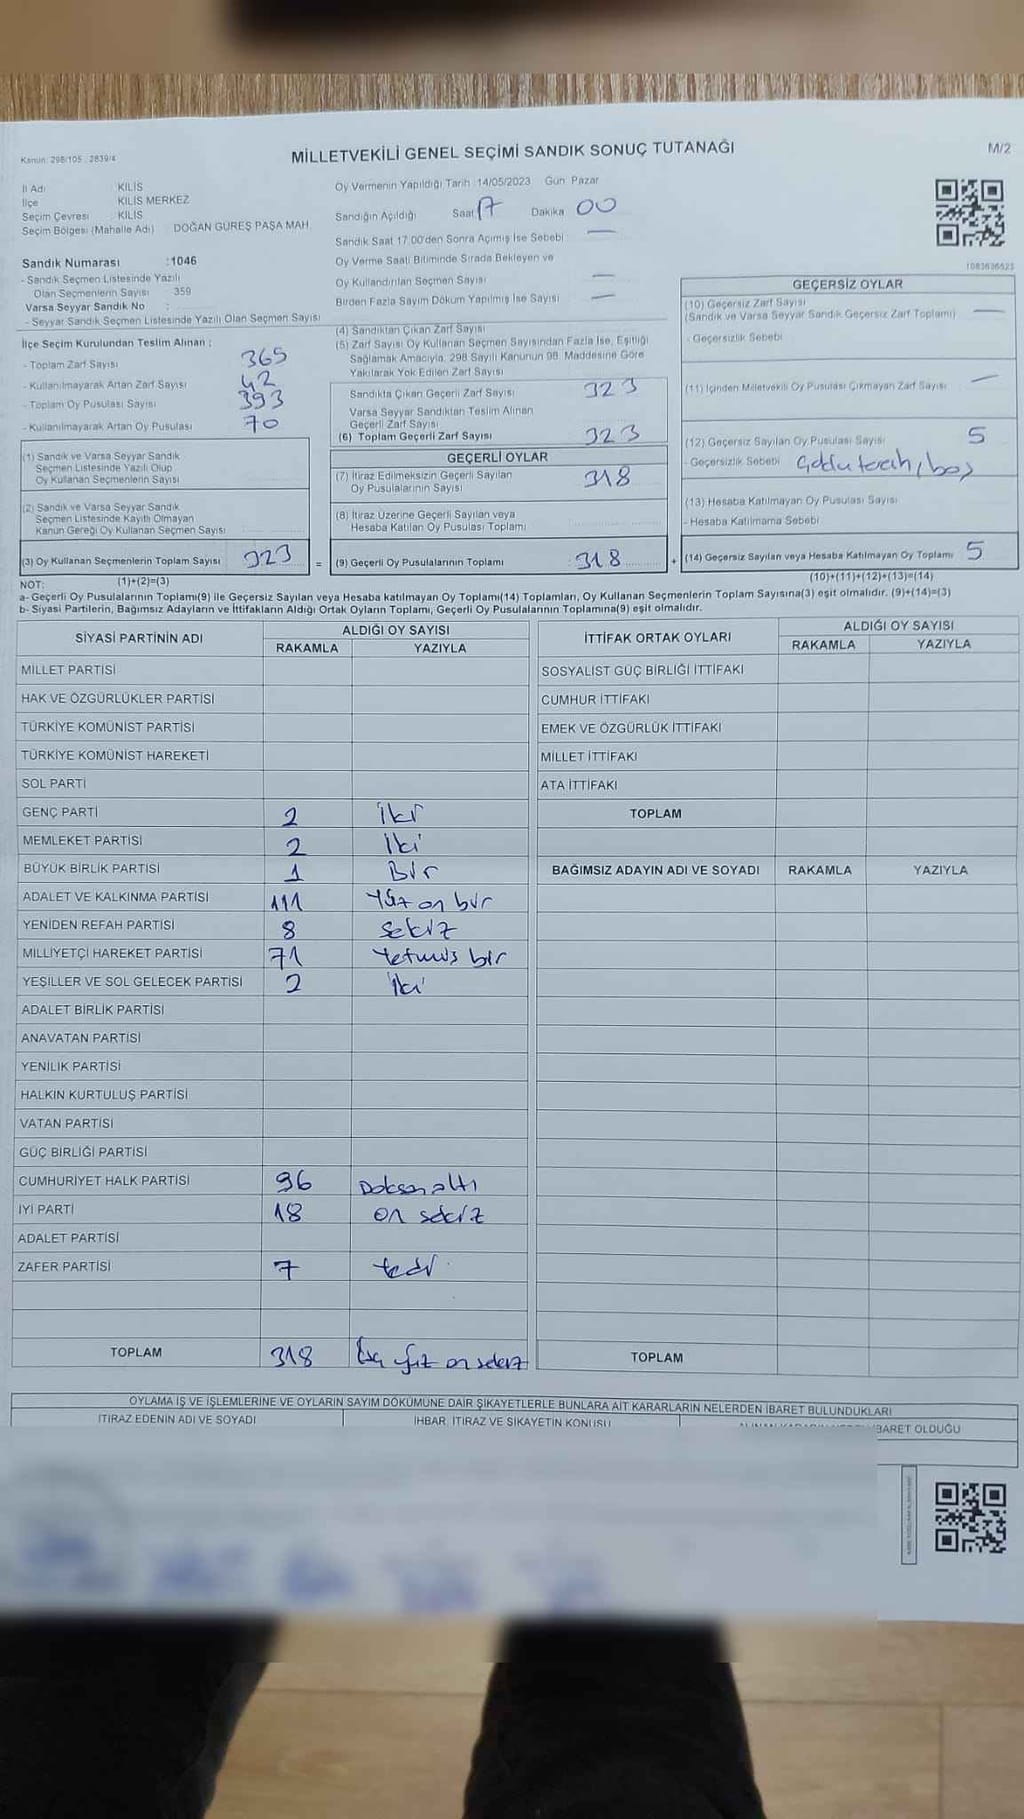 Kanun: 298/105 - 2839/4
MİLLETVEKİLİ GENEL SEÇİMİ SANDIK SONUÇ TUTANAĞI
M/2
İl Adı : KİLİS
İlçe : KİLİS MERKEZ
Seçim Çevresi : KİLİS
Seçim Bölgesi (Mahalle Adı) DOĞAN GÜREŞ PAŞA MAH.
Sandık Numarası :1046
- Sandık Seçmen Listesinde Yazılı
Olan Seçmenlerin Sayısı : 359
Varsa Seyyar Sandık No :
- Seyyar Sandık Seçmen Listesinde Yazılı Olan Seçmen Sayısı
İlçe Seçim Kurulundan Teslim Alınan :
- Toplam Zarf Sayısı 365
- Kullanılmayarak Artan Zarf Sayısı 42
- Toplam Oy Pusulası Sayısı 393
- Kullanılmayarak Artan Oy Pusulası 70
(1) Sandık ve Varsa Seyyar Sandık
Seçmen Listesinde Yazılı Olup
Oy Kullanan Seçmenlerin Sayısı
(2) Sandık ve Varsa Seyyar Sandık
Seçmen Listesinde Kayıtlı Olmayan
Kanun Gereği Oy Kullanan Seçmen Sayısı
(3) Oy Kullanan Seçmenlerin Toplam Sayısı 323 =
Oy Vermenin Yapıldığı Tarih :14/05/2023 Gün: Pazar
Sandığın Açıldığı Saat 17 Dakika 00
Sandık Saat 17:00'den Sonra Açımış İse Sebebi : —
Oy Verme Saati Bitiminde Sırada Bekleyen ve
Oy Kullandırılan Seçmen Sayısı —
Birden Fazla Sayım Döküm Yapılmış İse Sayısı —
(4) Sandıktan Çıkan Zarf Sayısı
(5) Zarf Sayısı Oy Kullanan Seçmen Sayısından Fazla İse, Eşitliği
Sağlamak Amacıyla, 298 Sayılı Kanunun 98. Maddesine Göre
Yakılarak Yok Edilen Zarf Sayısı
Sandıkta Çıkan Geçerli Zarf Sayısı 323
Varsa Seyyar Sandıktan Teslim Alınan
Geçerli Zarf Sayısı
(6) Toplam Geçerli Zarf Sayısı 323
GEÇERLİ OYLAR
(7) İtiraz Edilmeksizin Geçerli Sayılan
Oy Pusulalarının Sayısı 318
(8) İtiraz Üzerine Geçerli Sayılan veya
Hesaba Katılan Oy Pusulası Toplamı
(9) Geçerli Oy Pusulalarının Toplamı 318 +
1083636523
GEÇERSİZ OYLAR
(10) Geçersiz Zarf Sayısı
(Sandık ve Varsa Seyyar Sandık Geçersiz Zarf Toplamı) —
- Geçersizlik Sebebi
(11) İçinden Milletvekili Oy Pusulası Çıkmayan Zarf Sayısı —
(12) Geçersiz Sayılan Oy Pusulası Sayısı 5
- Geçersizlik Sebebi boş
(13) Hesaba Katılmayan Oy Pusulası Sayısı
- Hesaba Katılmama Sebebi
(14) Geçersiz Sayılan veya Hesaba Katılmayan Oy Toplamı 5
NOT: (1)+(2)=(3)
(10)+(11)+(12)+(13)=(14)
a- Geçerli Oy Pusulalarının Toplamı(9) ile Geçersiz Sayılan veya Hesaba katılmayan Oy Toplamı(14) Toplamları, Oy Kullanan Seçmenlerin Toplam Sayısına(3) eşit olmalıdır. (9)+(14)=(3)
b- Siyasi Partilerin, Bağımsız Adayların ve İttifakların Aldığı Ortak Oyların Toplamı, Geçerli Oy Pusulalarının Toplamına(9) eşit olmalıdır.
SİYASİ PARTİNİN ADI
ALDIĞI OY SAYISI
RAKAMLA YAZIYLA
MİLLET PARTİSİ
HAK VE ÖZGÜRLÜKLER PARTİSİ
TÜRKİYE KOMÜNİST PARTİSİ
TÜRKİYE KOMÜNİST HAREKETİ
SOL PARTİ
GENÇ PARTİ 2 iki
MEMLEKET PARTİSİ 2 iki
BÜYÜK BİRLİK PARTİSİ 1 Bir
ADALET VE KALKINMA PARTİSİ 111 Yüz on bir
YENİDEN REFAH PARTİSİ 8 sekiz
MİLLİYETÇİ HAREKET PARTİSİ 71 Yetmiş bir
YEŞİLLER VE SOL GELECEK PARTİSİ 2 iki
ADALET BİRLİK PARTİSİ
ANAVATAN PARTİSİ
YENİLİK PARTİSİ
HALKIN KURTULUŞ PARTİSİ
VATAN PARTİSİ
GÜÇ BİRLİĞİ PARTİSİ
CUMHURİYET HALK PARTİSİ 96 Doksan altı
İYİ PARTİ 18 on sekiz
ADALET PARTİSİ
ZAFER PARTİSİ 7 Yedi
TOPLAM 318 Üç yüz on sekiz
İTTİFAK ORTAK OYLARI
ALDIĞI OY SAYISI
RAKAMLA YAZIYLA
SOSYALİST GÜÇ BİRLİĞİ İTTİFAKI
CUMHUR İTTİFAKI
EMEK VE ÖZGÜRLÜK İTTİFAKI
MİLLET İTTİFAKI
ATA İTTİFAKI
TOPLAM
BAĞIMSIZ ADAYIN ADI VE SOYADI RAKAMLA YAZIYLA
TOPLAM
OYLAMA İŞ VE İŞLEMLERİNE VE OYLARIN SAYIM DÖKÜMÜNE DAİR ŞİKAYETLERLE BUNLARA AİT KARARLARIN NELERDEN İBARET BULUNDUKLARI
İTİRAZ EDENİN ADI VE SOYADI
İHBAR, İTİRAZ VE ŞİKAYETİN KONUSU
İBARET OLDUĞU